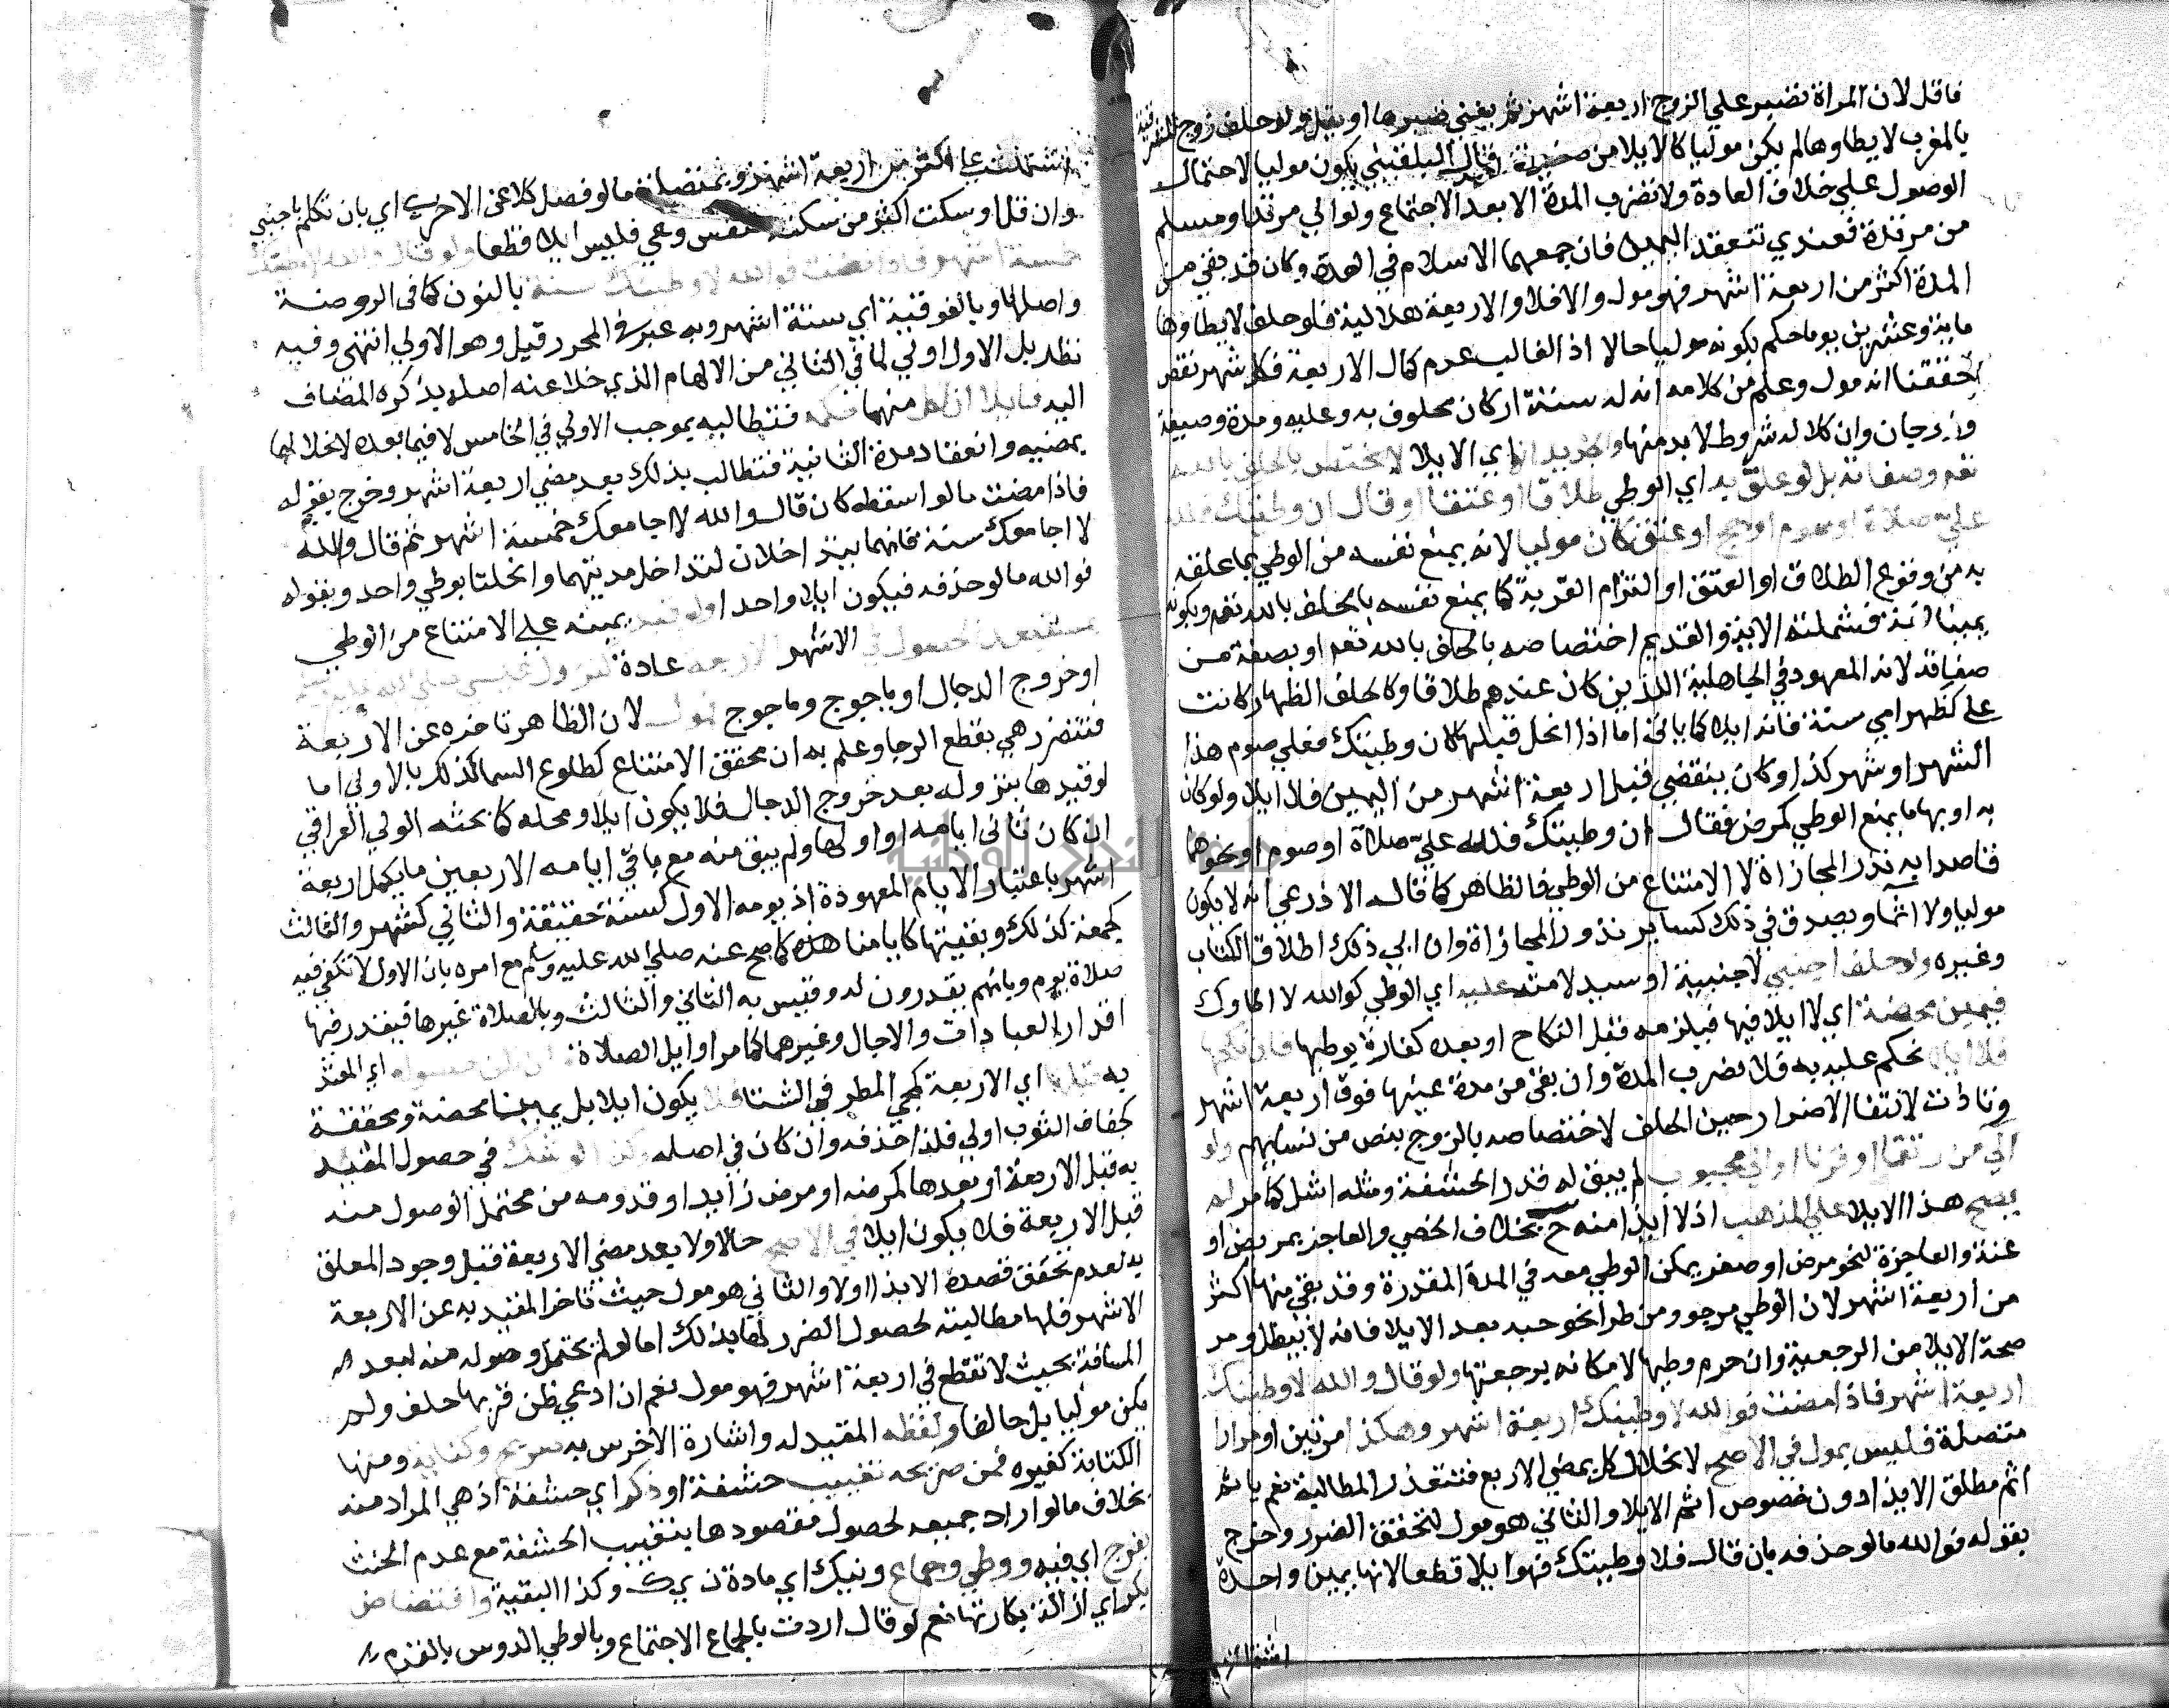 فاقل لان المراة تصبر علي الزوج اربعة اشهر ثم يفني صبرها او يقل ولو حلف زوج المشرقية
بالمغرب لا يطاوها لم يكن موليا كالايلا من صغيرة قال البلقيني يكون موليا لاحتمال
الوصول علي خلاف العادة ولا تضرب المدة الا بعد الاجتماع ولو الي مرتد او مسلم
من مرتدة فعندي تنعقد اليمين فان جمعهما الاسلام في العدة وكان قد بقي من
المدة اكثر من اربعة اشهر فهو مول والا فلا والاربعة هلالية فلو حلف لا يطاوها
ماية وعشرين يوما حكم بكونه موليا حالا اذ الغالب عدم كمال الاربعة فكل شهر نقص
تحققنا انه مول وعلم من كلامه انه له ستة اركان محلوف به وعليه ومدة وصيغة
وزوجان وان كلا له شروط لا بد منها والجديد انه اي الايلا لا يختص بالحلف بالله
تعم وصفاته بل لو علق به اي الوطي طلاقا او عتقا او قال ان وطيتك فلله
علي صلاة او صوم او حج او عتق كان موليا لانه يمنع نفسه من الوطي بما علقه
به من وقوع الطلاق او العتق او التزام القربة كما يمنع نفسه بالحلف بالله تعم ويكون
يمينا فشملته الاية والقديم اختصاصه بالحلف بالله تعم او بصفة من
صفاته لانه المعهود في الجاهلية الذين كان عندهم طلاقا وكالحلف الظهار كانت
علي كظهر امي سنة فانه ايلا كما ياتي اما اذا انحل قبلها كان وطيتك فعلي صوم هذا
الشهر او شهر كذا وكان ينقضي قبل اربعة اشهر من اليمين فلا ايلا ولو كان
به او بها ما يمنع الوطي كمرض فقال ان وطيتك فلله علي صلاة او صوم او نحوها
قاصدا به نذر المجازاة لا الامتناع من الوطي فالظاهر كما قاله الاذرعي انه لا يكون
موليا ولا اثما ويصدق في ذلك كساير نذور المجازاة وان ابي ذلك اطلاق الكتاب
وغيره ولو حلف اجنبي لاجنبية او سيد لامته عليه اي الوطي كوالله لا اطاوك
فيمين محضة اي لا ايلا فيها فيلزمه قبل النكاح او بعده كفارة بوطيها فان نكحها
فلا ايلا نحكم عليه به فلا تضرب المدة وان بقي من مدة عينها فوق اربعة اشهر
وتاذت لانتفا الاضرار حين الحلف لاختصاصه بالزوج بنص من نسايهم ولو
الي من رتقا او قرنا او الي مجبوب لم يبق له قدر الحشفة ومثله اشل كما مر لم
يصح هذا الايلا علي المذهب اذ لا ايذا منه ح بخلاف الخصي والعاجز بمرض او
عنة والعاجزة لنحو مرض او صغر يمكن الوطي معه في المدة المقدرة وقد بقي منها اكثر
من اربعة اشهر لان الوطي مرجو ومن طرا نحو جبه بعد الايلا فانه لا يبطل ومر
صحة الايلا من الرجعية وان حرم وطيها لامكانه برجعتها ولو قال والله لا وطيتك
اربعة اشهر فاذا مضت فوالله لا وطيتك اربعة اشهر وهكذا مرتين او مرارا
متصلة فليس بمول في الاصح لانحلال كل بمضي الاربع فتتعذر المطالبة نعم ياثم
اثم مطلق الايذا دون خصوص اثم الايلا والثاني هو مول لتحقق الضرر وخرج
بقوله فوالله ما لو حذفه بان قال فلا وطيتك فهو ايلا قطعا لانها يمين واحدة
اشتملت
اشتملت علي اكثر من اربعة اشهر وبمتصلة ما لو فصل كلا عن الاخري اي بان تكلم باجنبي
وان قل او سكت اكثر من سكتة تنفس وعي فليس ايلا قطعا ولو قال والله لا وطيتك
خمسة اشهر فاذا مضت فوالله لا وطيتك سنة بالنون كما في الروضة
واصلها وبالفوقية اي ستة اشهر وبه عبر في المحرر قيل وهو الاولي انتهى وفيه
نظر بل الاول اولي لما في الثاني من الايهام الذي خلا عنه اصله بذكره المضاف
اليه فايلاان لكل منهما حكمه فتطالبه بموجب الاولي في الخامس لا فيما بعده لانحلالها
بمضيه وانعقاد مدة الثانية فتطالب بذلك بعد مضي اربعة اشهر وخرج بقوله
فاذا مضت ما لو اسقطه كان قال والله لا اجامعك خمسة اشهر ثم قال والله
لا اجامعك سنة فانهما يتداخلان لتداخل مدتيهما وانحلتا بوطي واحد وبقوله
فوالله ما لو حذفه فيكون ايلا واحدا ولو قيد يمينه علي الامتناع من الوطي
بمستبعد الحصول في الاشهر الاربعة عادة كنزول عيسى صلى الله عليه
او خروج الدجال او ياجوج وماجوج فمول لان الظاهر تاخره عن الاربعة
فتتضرر هي بقطع الرجا وعلم به ان محقق الامتناع كطلوع السما كذلك بالاولي اما
لو قيدها بنزوله بعد خروج الدجال فلا يكون ايلا ومحله كما بحثه الولي العراقي
ان كان ثاني ايامه او اولها ولم يبق منه مع باقي ايامه الاربعين ما يكمل اربعة
اشهر باعتبار الايام المعهودة اذ يومه الاول كسنة حقيقة والثاني كشهر والثالث
كجمعة كذلك وبقيتها كايامنا هذه كما صح عنه صلى الله عليه وسلم مع امره بان الاول لا تكفي فيه
صلاة يوم وبانهم يقدرون له وقيس به الثاني والثالث وبالصلاة غيرها فيقدر فيها
اقدار العبادات والاجال وغيرهما كما مر اوايل الصلاة وان ظن حصوله اي المقيد
به قبلها اي الاربعة كمجي المطر في الشتا فلا يكون ايلا بل يمينا محضة ومحققة
كجفاف الثوب اولي فلذا حذفه وان كان في اصله وكذا لو شك في حصول المقيد
به قبل الاربعة او بعدها كمرضه او مرض زايد او قدومه من محتمل الوصول منه
قبل الاربعة فلا يكون ايلا في الاصح حالا ولا بعد مضي الاربعة قبل وجود المعلق
به لعدم تحقق قصده الايذا اولا والثاني هو مول حيث تاخر المقيد به عن الاربعة
الاشهر فلها مطالبته لحصول الضرر لها بذلك اما لو لم يحتمل وصوله منه لبعد
المسافة بحيث لا تقطع في اربعة اشهر فهو مول نعم ان ادعي ظن قربها حلف ولم
يكن موليا بل حالفا ولفظه المقيد له واشارة الاخرس به صريح وكناية ومنها
الكتابة كغيره فمن صريحه تغييب حشفة او ذكر اي حشفة اذ هي المراد منه
بخلاف ما لو اراد جميعه لحصول مقصودها بتغييب الحشفة مع عدم الحنث
بفرج اي فيه ووطي وجماع ونيك اي مادة ن ي ك وكذا البقية وافتضاض
بكر اي ازالة بكارتها نعم لو قال اردت بالجماع الاجتماع وبالوطي الدوس بالقدم